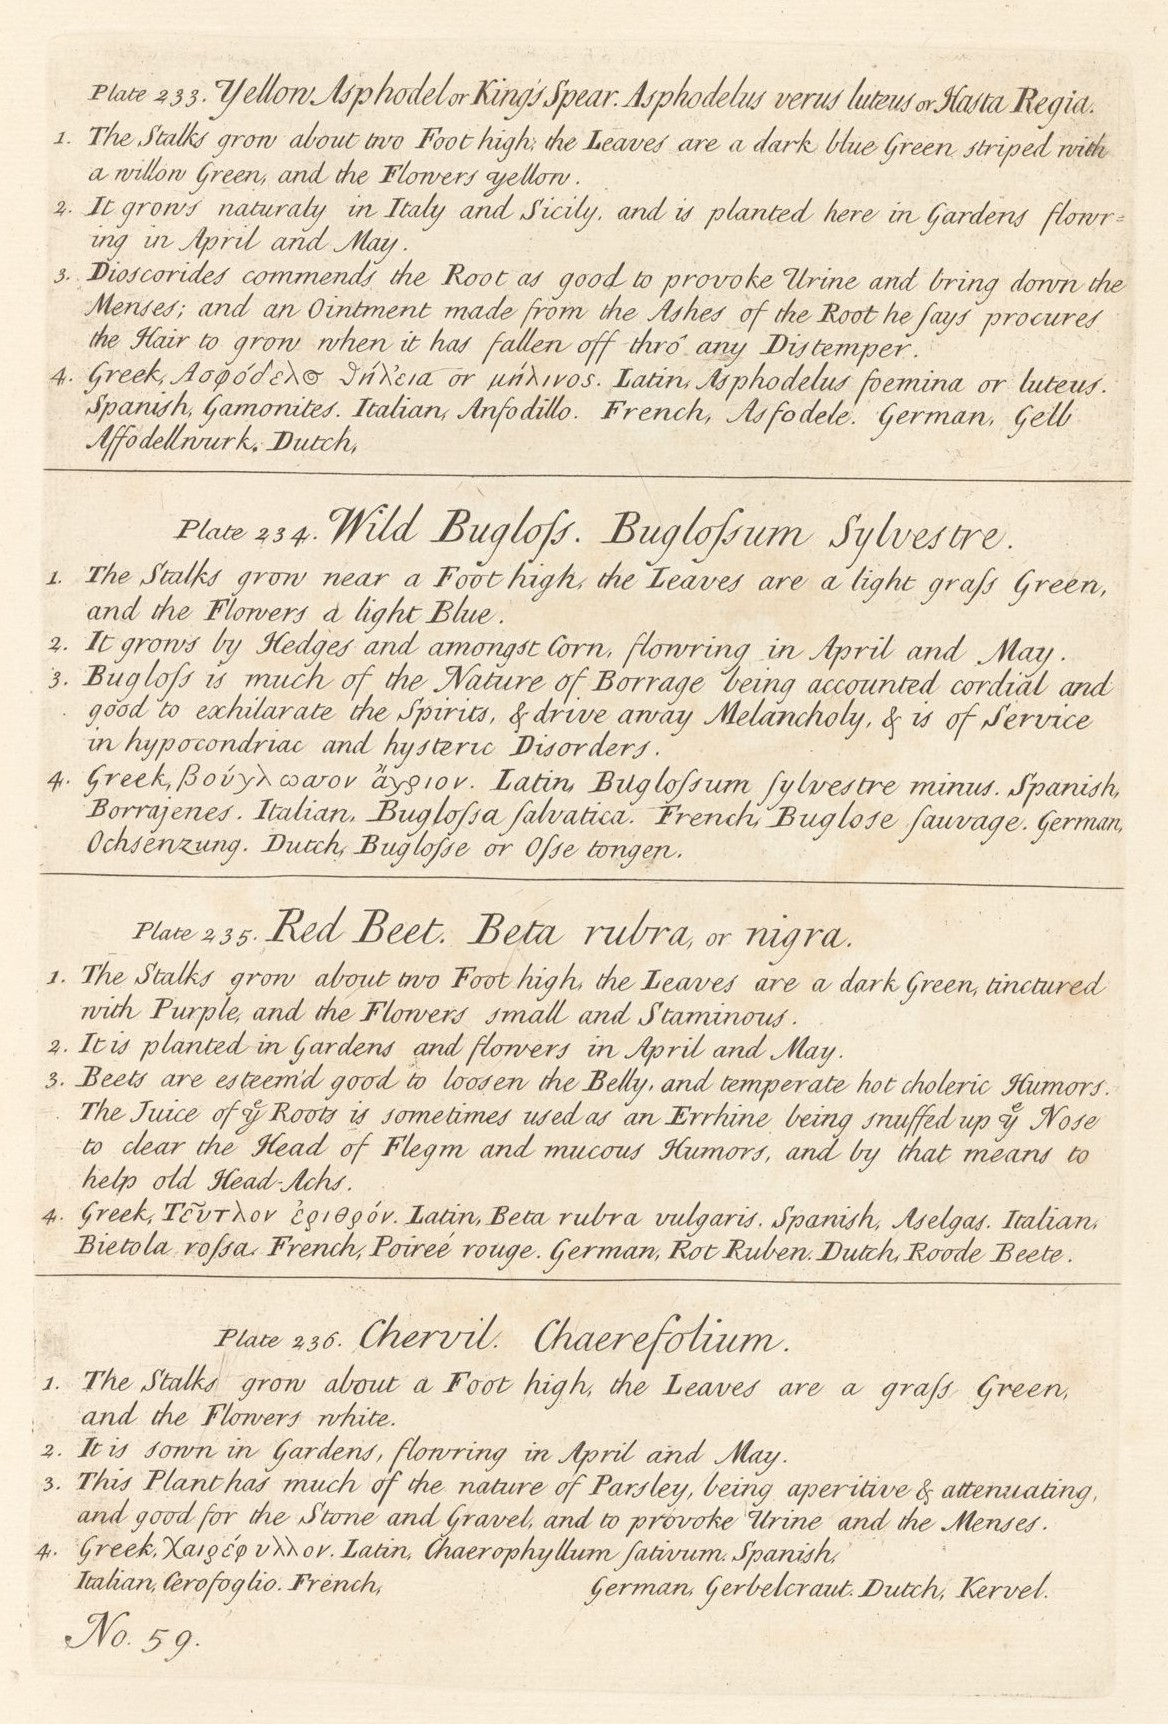 Plate 233. Yellow Asphodel or King's Spear. Asphodelus verus luteus or Hasta Regia.
1. The Stalks grow about two Foot high, the Leaves are a dark blue Green striped with
a willow Green, and the Flowers yellow.
2. It grows naturaly in Italy and Sicily, and is planted here in Gardens flowr=
ing in April and May.
3. Dioscorides commends the Root as good to provoke Urine and bring down the
Menses; and an Ointment made from the Ashes of the Root he ſays procures
the Hair to grow when it has fallen off thrô any Distemper.
4. Greek, Ασφόδελος θήλεια or μήλινος. Latin, Asphodelus foemina or luteus.
Spanish, Gamonites. Italian, Anfodillo. French, Asfodele. German, Gelb
Affodellwurk. Dutch,
Plate 234. Wild Bugloſs. Bugloſsum Sylvestre.
1. The Stalks grow near a Foot high, the Leaves are a light graſs Green,
and the Flowers a light Blue.
2. It grows by Hedges and amongst Corn, flowring in April and May.
3. Bugloſs is much of the Nature of Borrage being accounted cordial and
good to exhilarate the Spirits, & drive away Melancholy, & is of Service
in hypocondriac and hysteric Disorders.
4. Greek, βούγλωσσον ἄγριον. Latin, Bugloſsum ſylvestre minus. Spanish,
Borrajenes. Italian, Bugloſsa ſalvatica. French, Buglose ſauvage. German,
Ochsenzung. Dutch, Bugloſse or Oſse tongen.
Plate 235. Red Beet. Beta rubra, or nigra.
1. The Stalks grow about two Foot high, the Leaves are a dark Green, tinctured
with Purple, and the Flowers small and Staminous.
2. It is planted in Gardens and flowers in April and May.
3. Beets are esteem'd good to loosen the Belly, and temperate hot choleric Humors.
The Juice of yͤ Roots is sometimes used as an Errhine being snuffed up yͤ Nose
to clear the Head of Flegm and mucous Humors, and by that means to
help old Head-Achs.
4. Greek, Τεῦτλον ἐριθρόν. Latin, Beta rubra vulgaris. Spanish, Aselgas. Italian,
Bietola roſsa. French, Poireé rouge. German, Rot Ruben. Dutch, Roode Beete.
Plate 236. Chervil. Chaerefolium.
1. The Stalks grow about a Foot high, the Leaves are a graſs Green,
and the Flowers white.
2. It is sown in Gardens, flowring in April and May.
3. This Plant has much of the nature of Parsley, being aperitive & attenuating,
and good for the Stone and Gravel, and to provoke Urine and the Menses.
4. Greek, Χαιρέφυλλον. Latin, Chaerophyllum ſativum. Spanish,
Italian, Cerofoglio. French, German, Gerbelcraut. Dutch, Kervel.
No. 59.